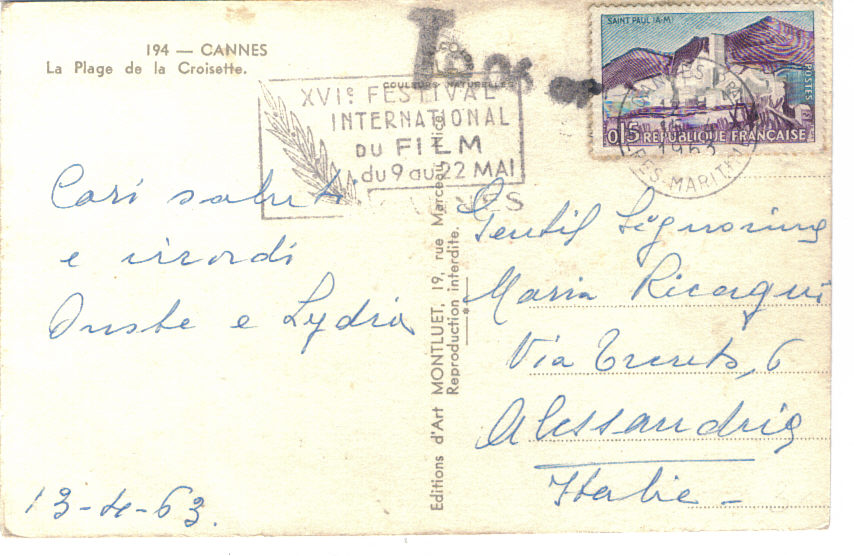 194 — CANNES
La Plage de la Croisette.
COULEURS NATURELLES
XVIe FESTIVAL
INTERNATIONAL
DU FILM
du 9 au 22 MAI
SAINT PAUL (A-M)
POSTES
0,15 REPUBLIQUE FRANÇAISE
CANNES
1963
ALPES-MARITIMES
T
Cari saluti
e ricordi
e Lydia
13-4-63.
Editions d'Art MONTLUET, 19, rue Marceau, Nice
Reproduction interdite.
Gentil Signorina
Maria
Via Trento, 6
Alessandria
Italie -